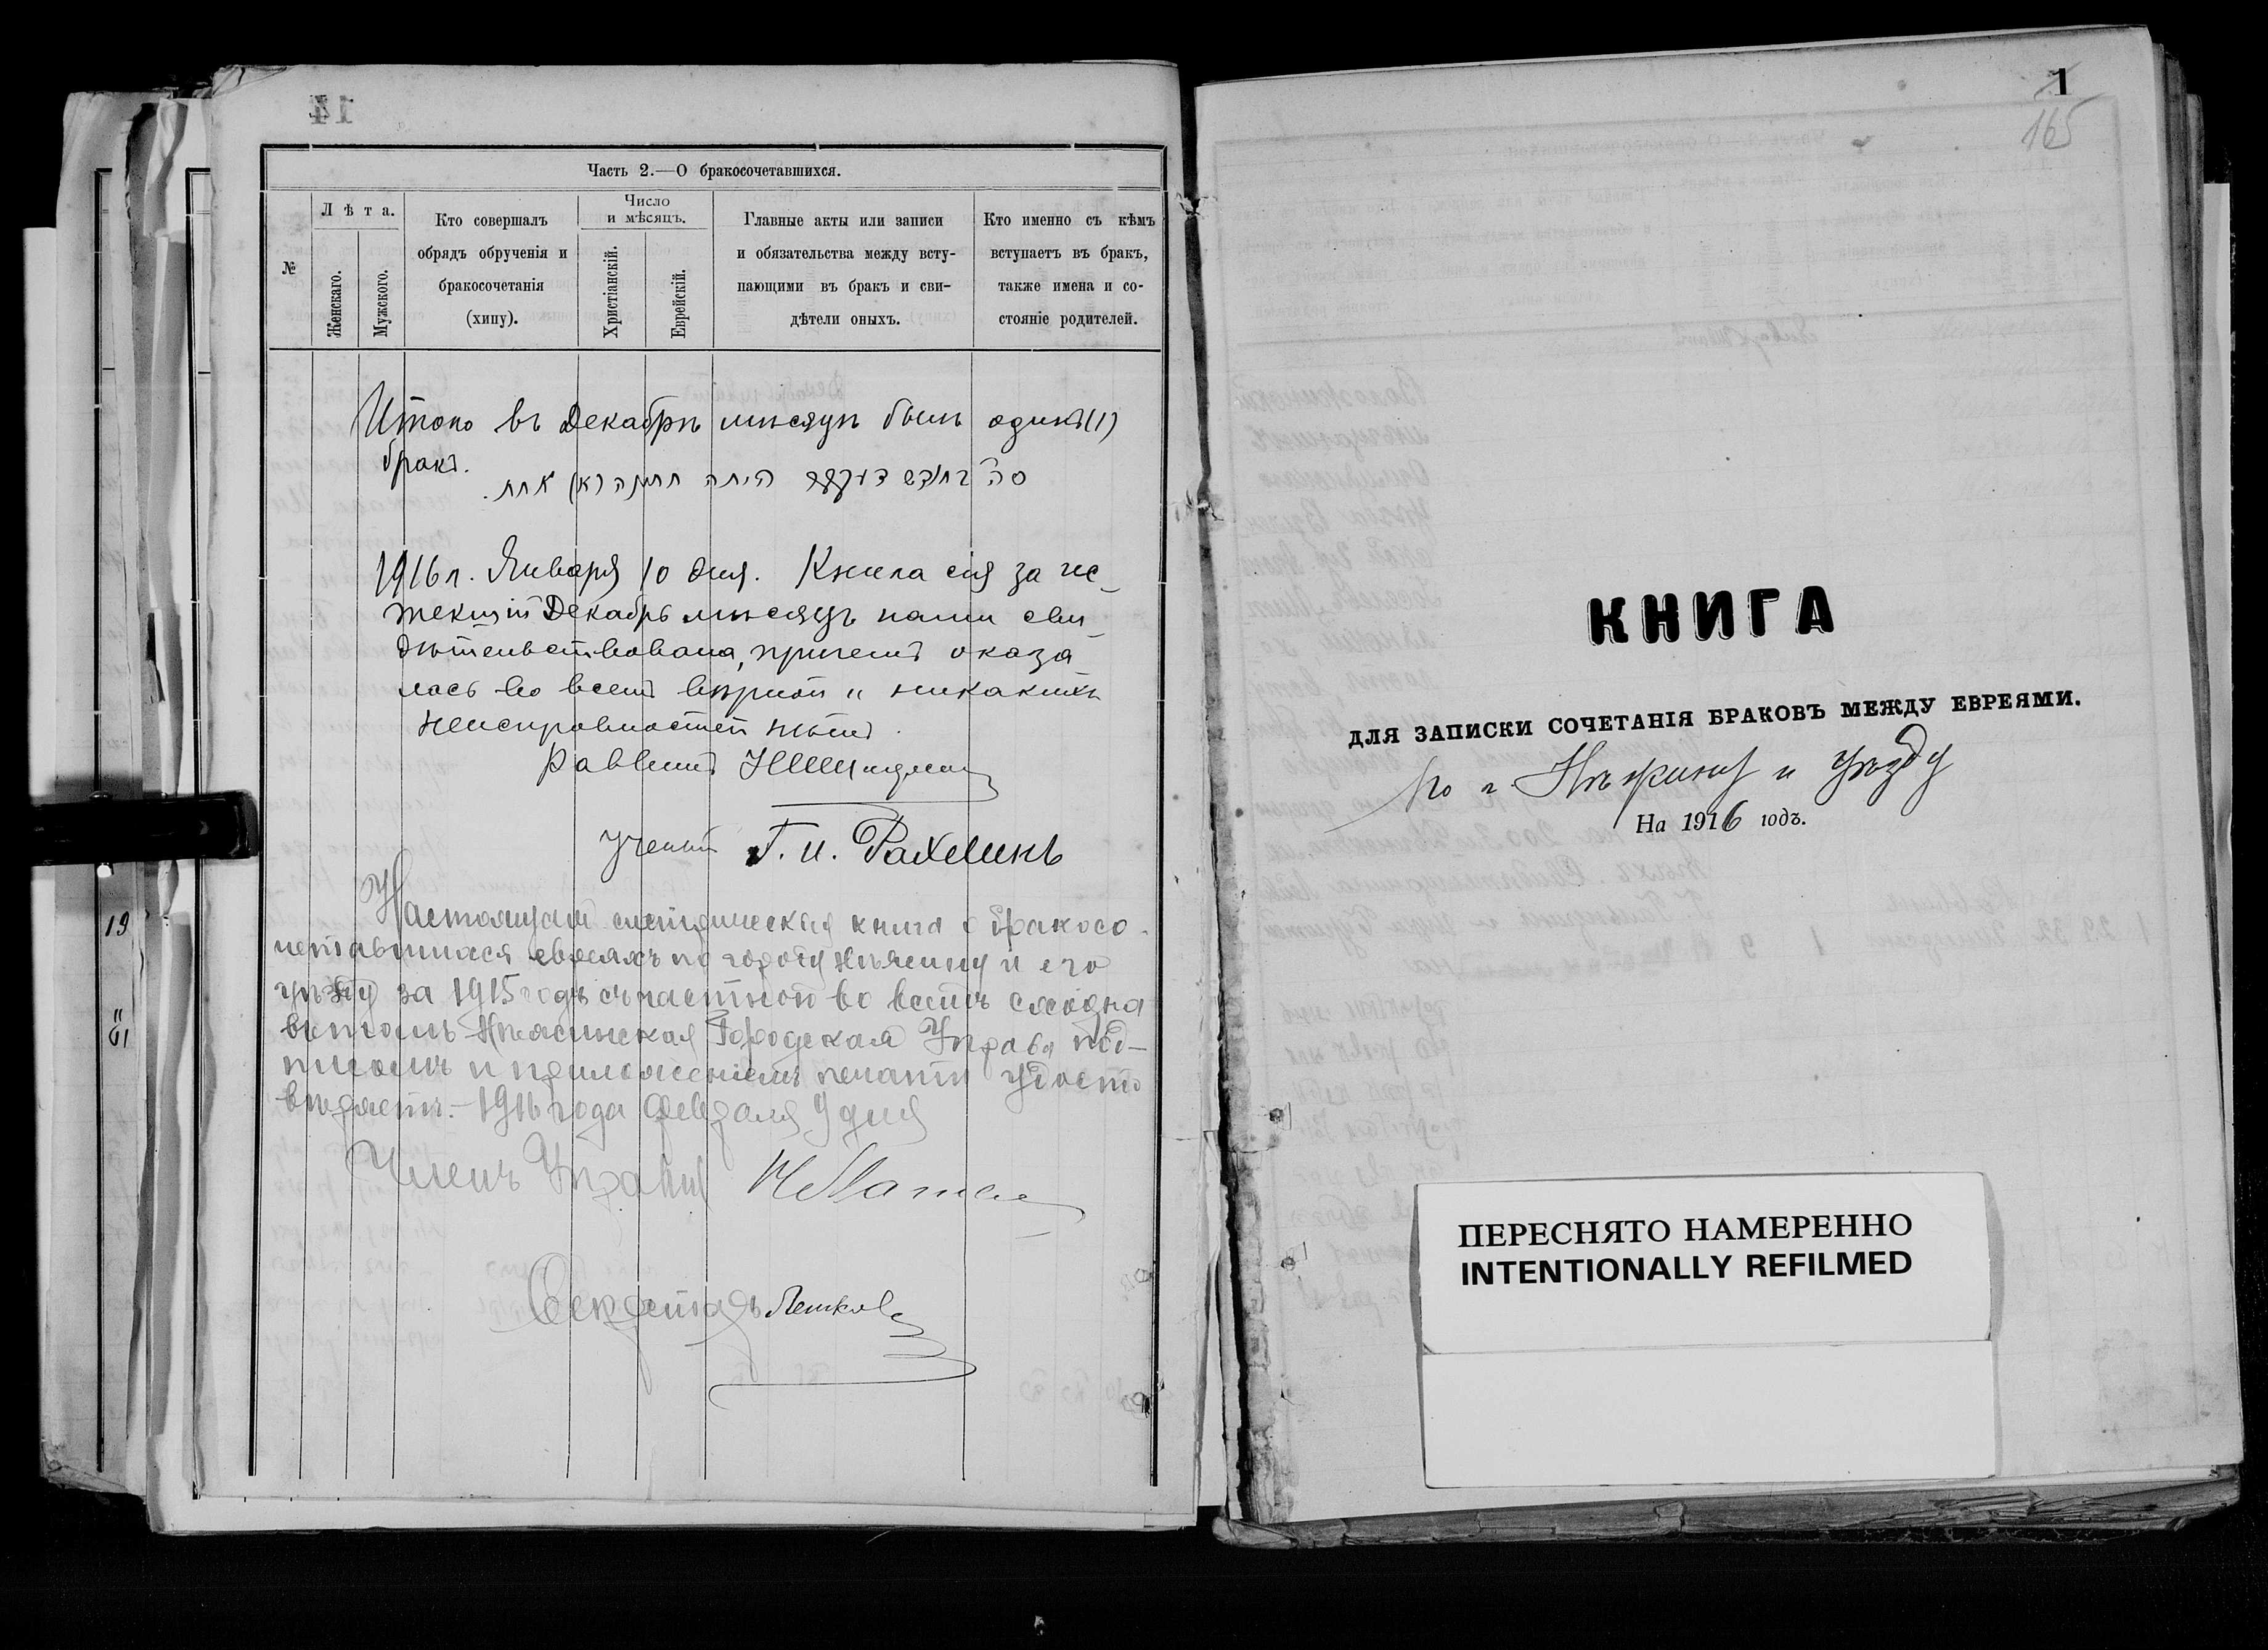 14
Часть 2.—О бракосочетавшихся.
№
Лѣта.
Женскаго.
Мужского.
Кто совершалъ
обрядъ обрученія и
бракосочетанія
(хипу).
Число
и мѣсяцъ.
Христіанскій.
Еврейскій.
Главные акты или записи
и обязательства между всту-
пающими въ бракъ и сви-
дѣтели оныхъ.
Кто именно съ кѣмъ
вступаетъ въ бракъ,
также имена и со-
стояніе родителей.
Итого въ Декабрѣ мѣсяцѣ былъ одинъ (1)
бракъ.
סה״כ בחודש דעקאבר היתה חתונה (א) אחת.
1916 г. Января 10 дня. Книга сія за ис-
текшій Декабрь мѣсяцъ нами сви-
дѣтельствована, причемъ оказа-
лась во всемъ вѣрной и никакихъ
неисправностей нѣтъ.
Раввинъ
Ученый Г. И. Рахлинъ
Настоящая метрическая книга о бракосо-
четавшихся евреяхъ по городу Нѣжину и его
уѣзду за 1915 годъ съ частной во всемъ сходна
въ томъ Нѣжинская Городская Управа под-
писомъ и приложеніемъ печати удосто-
вѣряетъ. 1916 года Февраля 9 дня
Членъ Управы
Секретарь
19
13
1
165
КНИГА
ДЛЯ ЗАПИСКИ СОЧЕТАНІЯ БРАКОВЪ МЕЖДУ ЕВРЕЯМИ.
По г. Нѣжину и уѣзду
На 1916 годъ.
ПЕРЕСНЯТО НАМЕРЕННО
INTENTIONALLY REFILMED